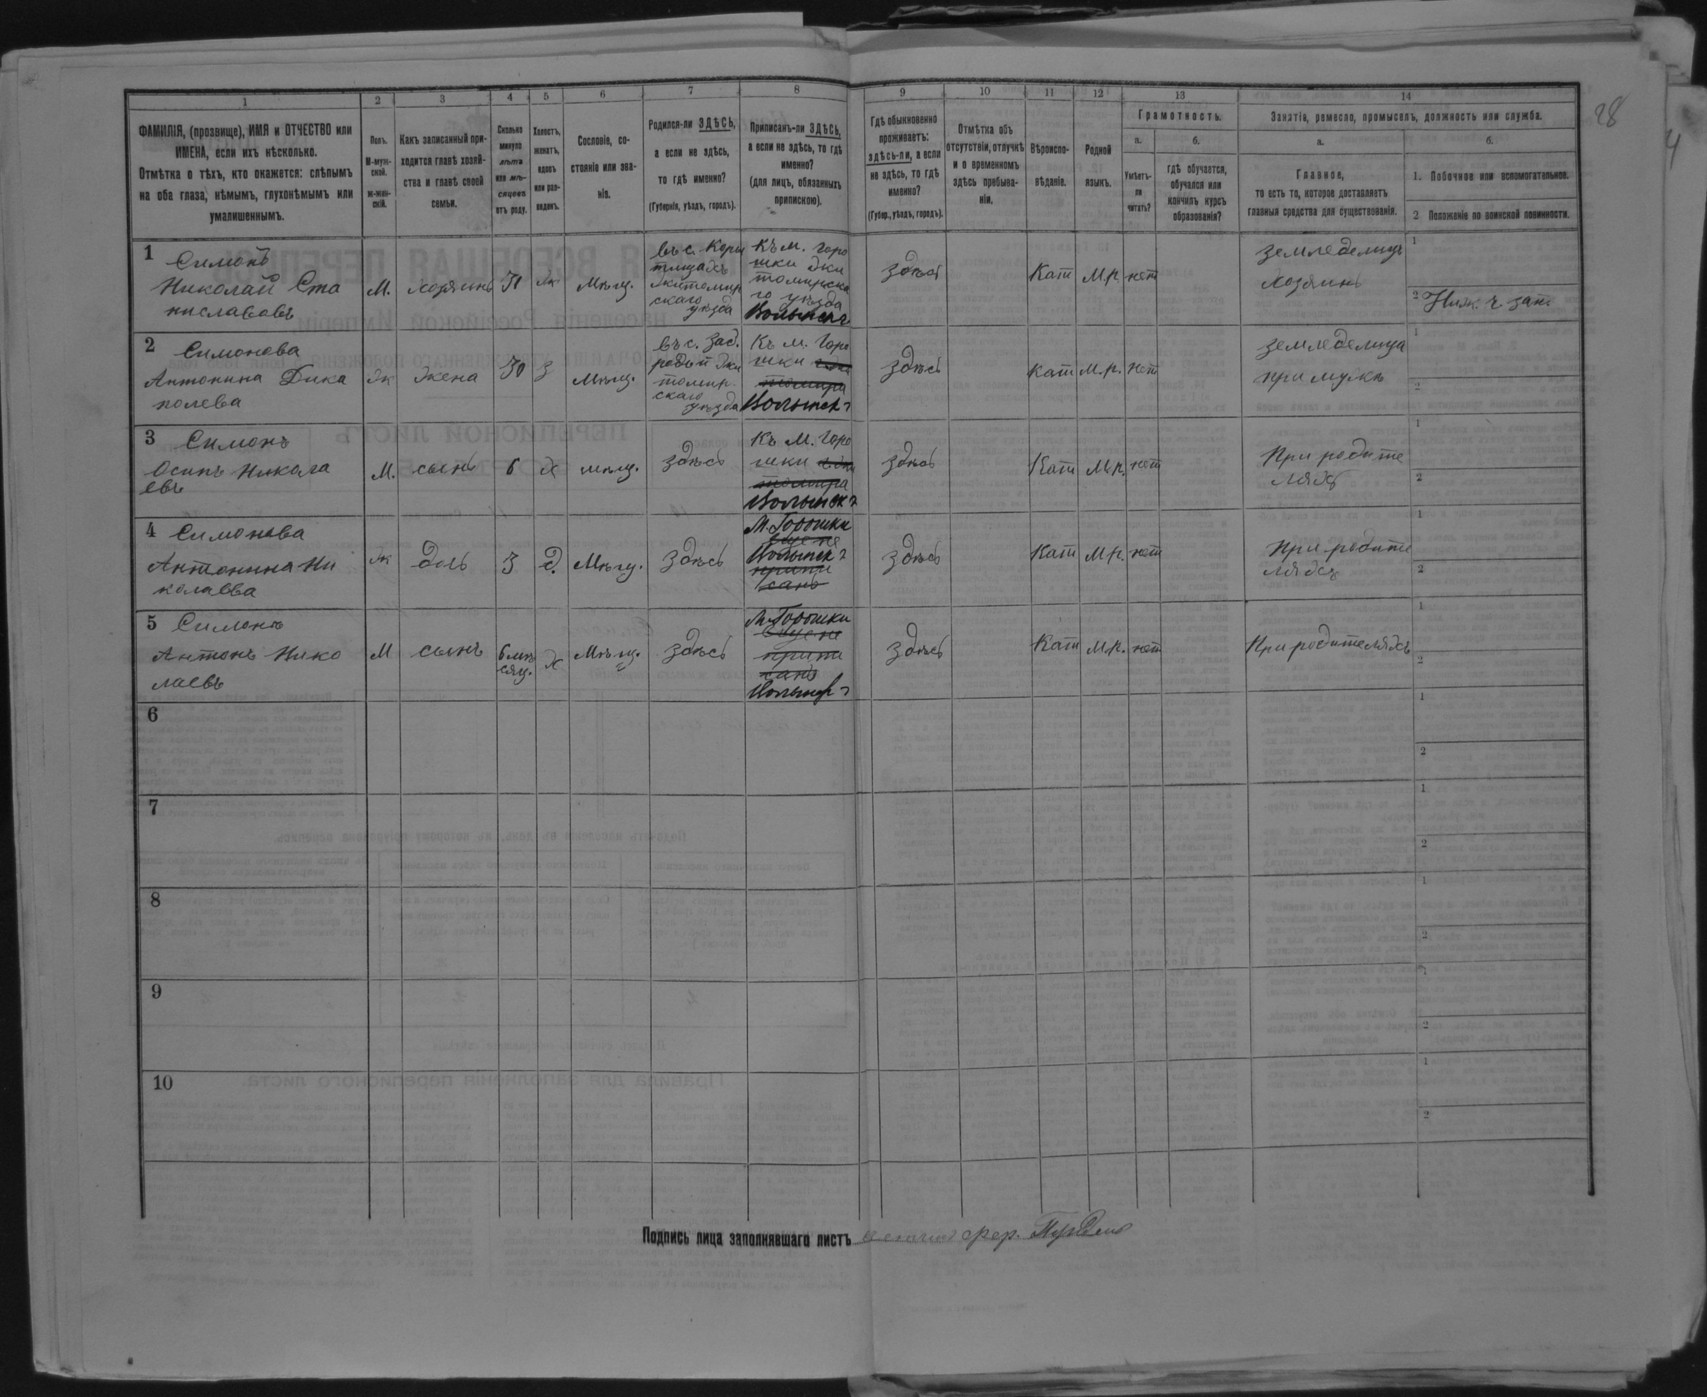 1 2 3 4 5 6 7 8 9 10 11 12 13 14
28
4
ФАМИЛІЯ, (прозвище), ИМЯ и ОТЧЕСТВО или
ИМЕНА, если ихъ нѣсколько.
Отмѣтка о тѣхъ, кто окажется: слѣпымъ
на оба глаза, нѣмымъ, глухонѣмымъ или
умалишеннымъ.
Полъ.
М-муж-
ской.
ж-жен-
скій.
Какъ записанный при-
ходится главѣ хозяй-
ства и главѣ своей
семьи.
Сколько
минуло
лѣтъ
или мѣ-
сяцевъ
отъ роду.
Холостъ,
женатъ,
вдовъ
или раз-
веденъ.
Сословіе, со-
стояніе или зва-
ніе.
Родился-ли ЗДѢСЬ,
а если не здѣсь,
то гдѣ именно?
(Губернія, уѣздъ, городъ).
Приписанъ-ли ЗДѢСЬ,
а если не здѣсь, то гдѣ
именно?
(для лицъ, обязанныхъ
припискою).
Гдѣ обыкновенно
проживаетъ:
здѣсь-ли, а если
не здѣсь, то гдѣ
именно?
(Губер., уѣздъ, городъ).
Отмѣтка объ
отсутствіи, отлучкѣ
и о временномъ
здѣсь пребыва-
ніи.
Вѣроиспо-
вѣданіе.
Родной
языкъ.
Грамотность.
а.
Умѣетъ-
ли
читать?
б.
гдѣ обучается,
обучался или
кончилъ курсъ
образованія?
Занятіе, ремесло, промыселъ, должность или служба.
а.
Главное,
то есть то, которое доставляетъ
главныя средства для существованія.
б.
1. Побочное или вспомогательное.
2 Положеніе по воинской повинности.
1
Симонъ
Николай Ста
ниславовъ
М.
хозяинъ
Мѣщ.
въ с. Коры
тищахъ
Житомир
скаго
уѣзда
Къ м. Горо
шки Жи
томирска
го уѣзда
Волынск г
здѣсь
Кат
М.р.
нет
земледелецъ
Хозяинъ
1
2 Ниж. ч. зап
2
Симонова
Антонина
полева
Ж
Жена
30
З
Мѣщ.
томир
скаго
уѣзда
Къ м. Горо
шки
Волынск г
здѣсь
Кат
М.р.
нет
земледелица
при мужѣ
1
2
3
Симонъ
Осипъ Никола
евъ
М.
сынъ
6
Х
мѣщ.
здѣсь
Къ м. Горо
шки
Волынск г
здѣсь
Кат
М.р.
нет
При родите
ляхъ
1
2
4
Симонова
Антонина Ни
колаева
Ж
дочь
3
Д.
Мѣщ.
здѣсь
М. Горошки
Волынск г
здѣсь
Кат
М.р.
нет
При родите
ляхъ
1
2
5
Симонъ
Антонъ Нико
лаевъ
М
сынъ
6 мѣ
сяц.
Х
Мѣщ.
здѣсь
М. Горошки
Волынск г
здѣсь
Кат
М.р.
нет
При родителяхъ
1
2
6
1
2
7
1
2
8
1
2
9
1
2
10
1
2
Подпись лица заполнявшаго листъ